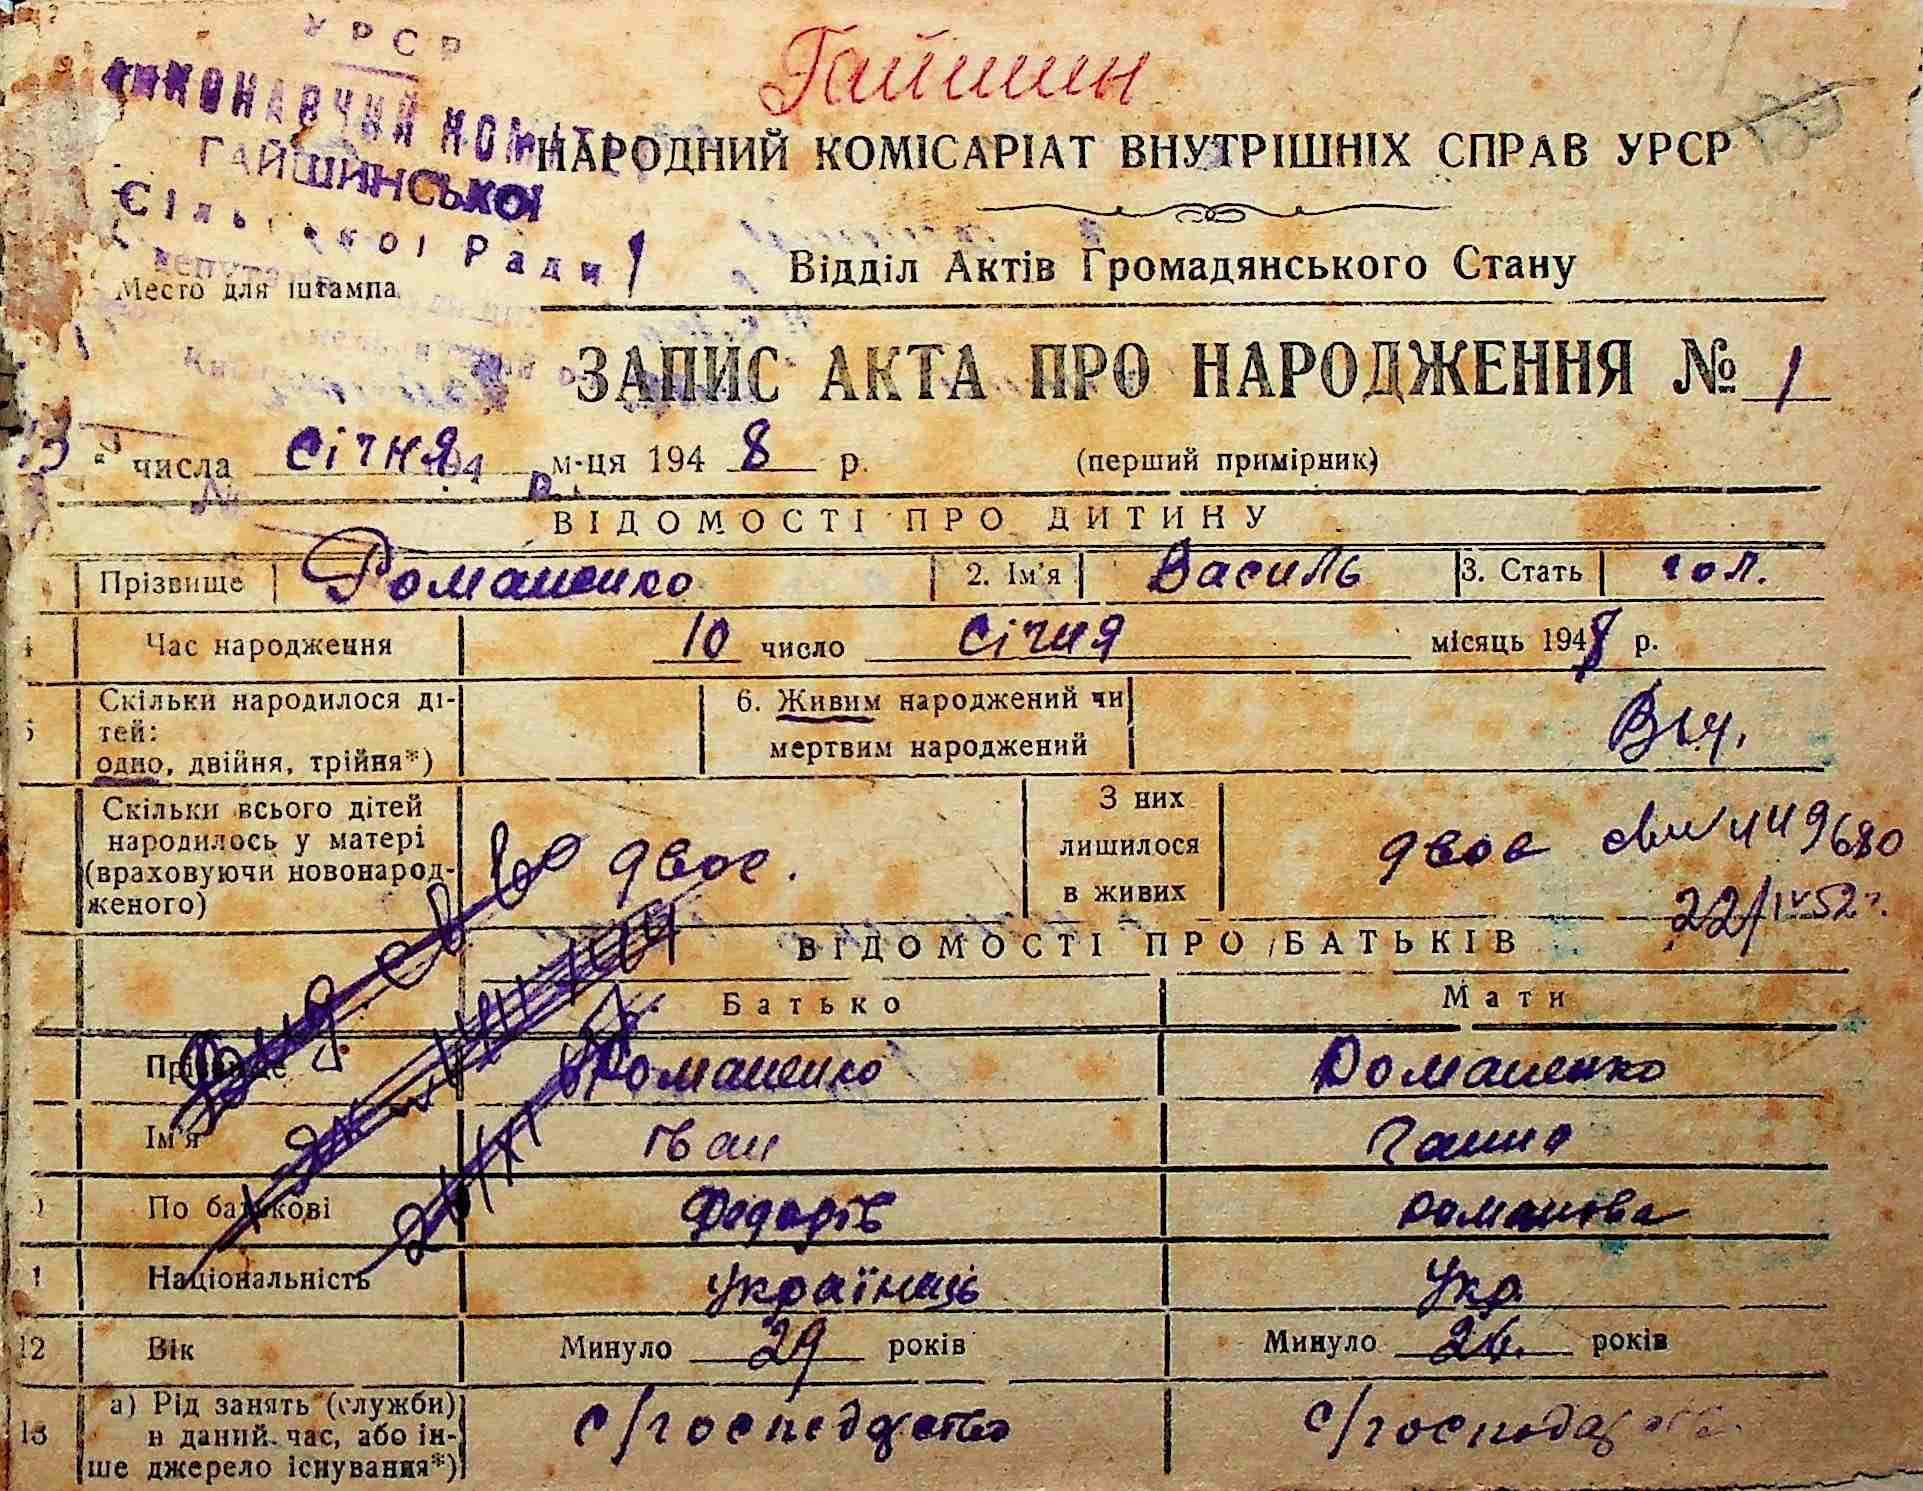 Гайшин
УРСР
ВИКОНАВЧИЙ КОМІТЕТ
ГАЙШИНСЬКОЇ
Сільської Ради
Место для штампа
НАРОДНИЙ КОМІСАРІАТ ВНУТРІШНІХ СПРАВ УРСР
Відділ Актів Громадянського Стану
ЗАПИС АКТА ПРО НАРОДЖЕННЯ № 1
13 " числа січня м-ця 1948 р. (перший примірник)
ВІДОМОСТІ ПРО ДИТИНУ
Прізвище Романенко 2. Ім'я Василь 3. Стать чол.
4 Час народження 10 число січня місяць 1948 р.
5 Скільки народилося ді-
тей:
одно, двійня, трійня*)
6. Живим народжений чи
мертвим народжений
Скільки всього дітей
народилось у матері
(враховуючи новонарод-
женого)
двоє.
З них
лишилося
в живих
двоє
149680
22/IV 52 г.
ВІДОМОСТІ ПРО БАТЬКІВ
Батько Мати
Прізвище Романенко Романенко
Ім'я Іван Ганна
По батькові Федорів Романова
Національність Українець Укр
12 Вік Минуло 29 років Минуло 24. років
13 а) Рід занять (служби)
в даний час, або ін-
ше джерело існування*)
с/господарство с/господарство